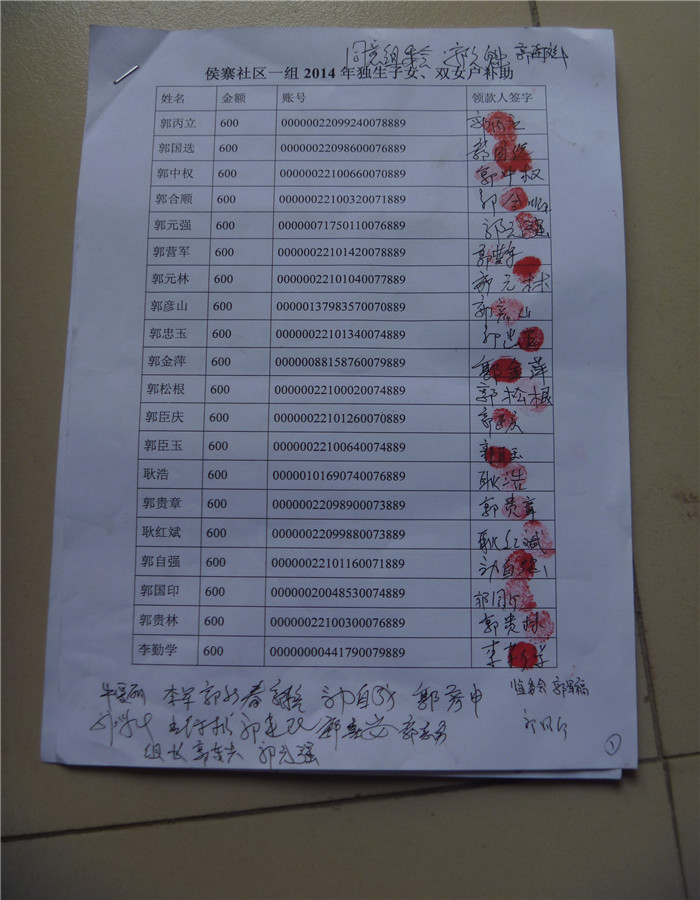 同意组长
侯寨社区一组 2014 年独生子女、双女户补助
姓名 金额 账号 领款人签字
郭丙立 600 00000022099240078889
郭国选 600 00000022098600076889
郭中权 600 00000022100660070889 郭中权
郭合顺 600 00000022100320071889
郭元强 600 00000071750110076889 郭元强
郭营军 600 00000022101420078889 郭营军
郭元林 600 00000022101040077889 郭元林
郭彦山 600 00000137983570070889 郭彦山
郭忠玉 600 00000022101340074889 郭忠玉
郭金萍 600 00000088158760079889 郭金萍
郭松根 600 00000022100020074889 郭松根
郭臣庆 600 00000022101260070889 郭臣庆
郭臣玉 600 00000022100640074889 郭臣玉
耿浩 600 00000101690740076889 耿浩
郭贵章 600 00000022098900073889 郭贵章
耿红斌 600 00000022099880073889 耿红斌
郭自强 600 00000022101160071889
郭国印 600 00000020048530074889
郭贵林 600 00000022100300076889 郭贵林
李勤学 600 00000000441790079889
李军
组长 郭元强
1